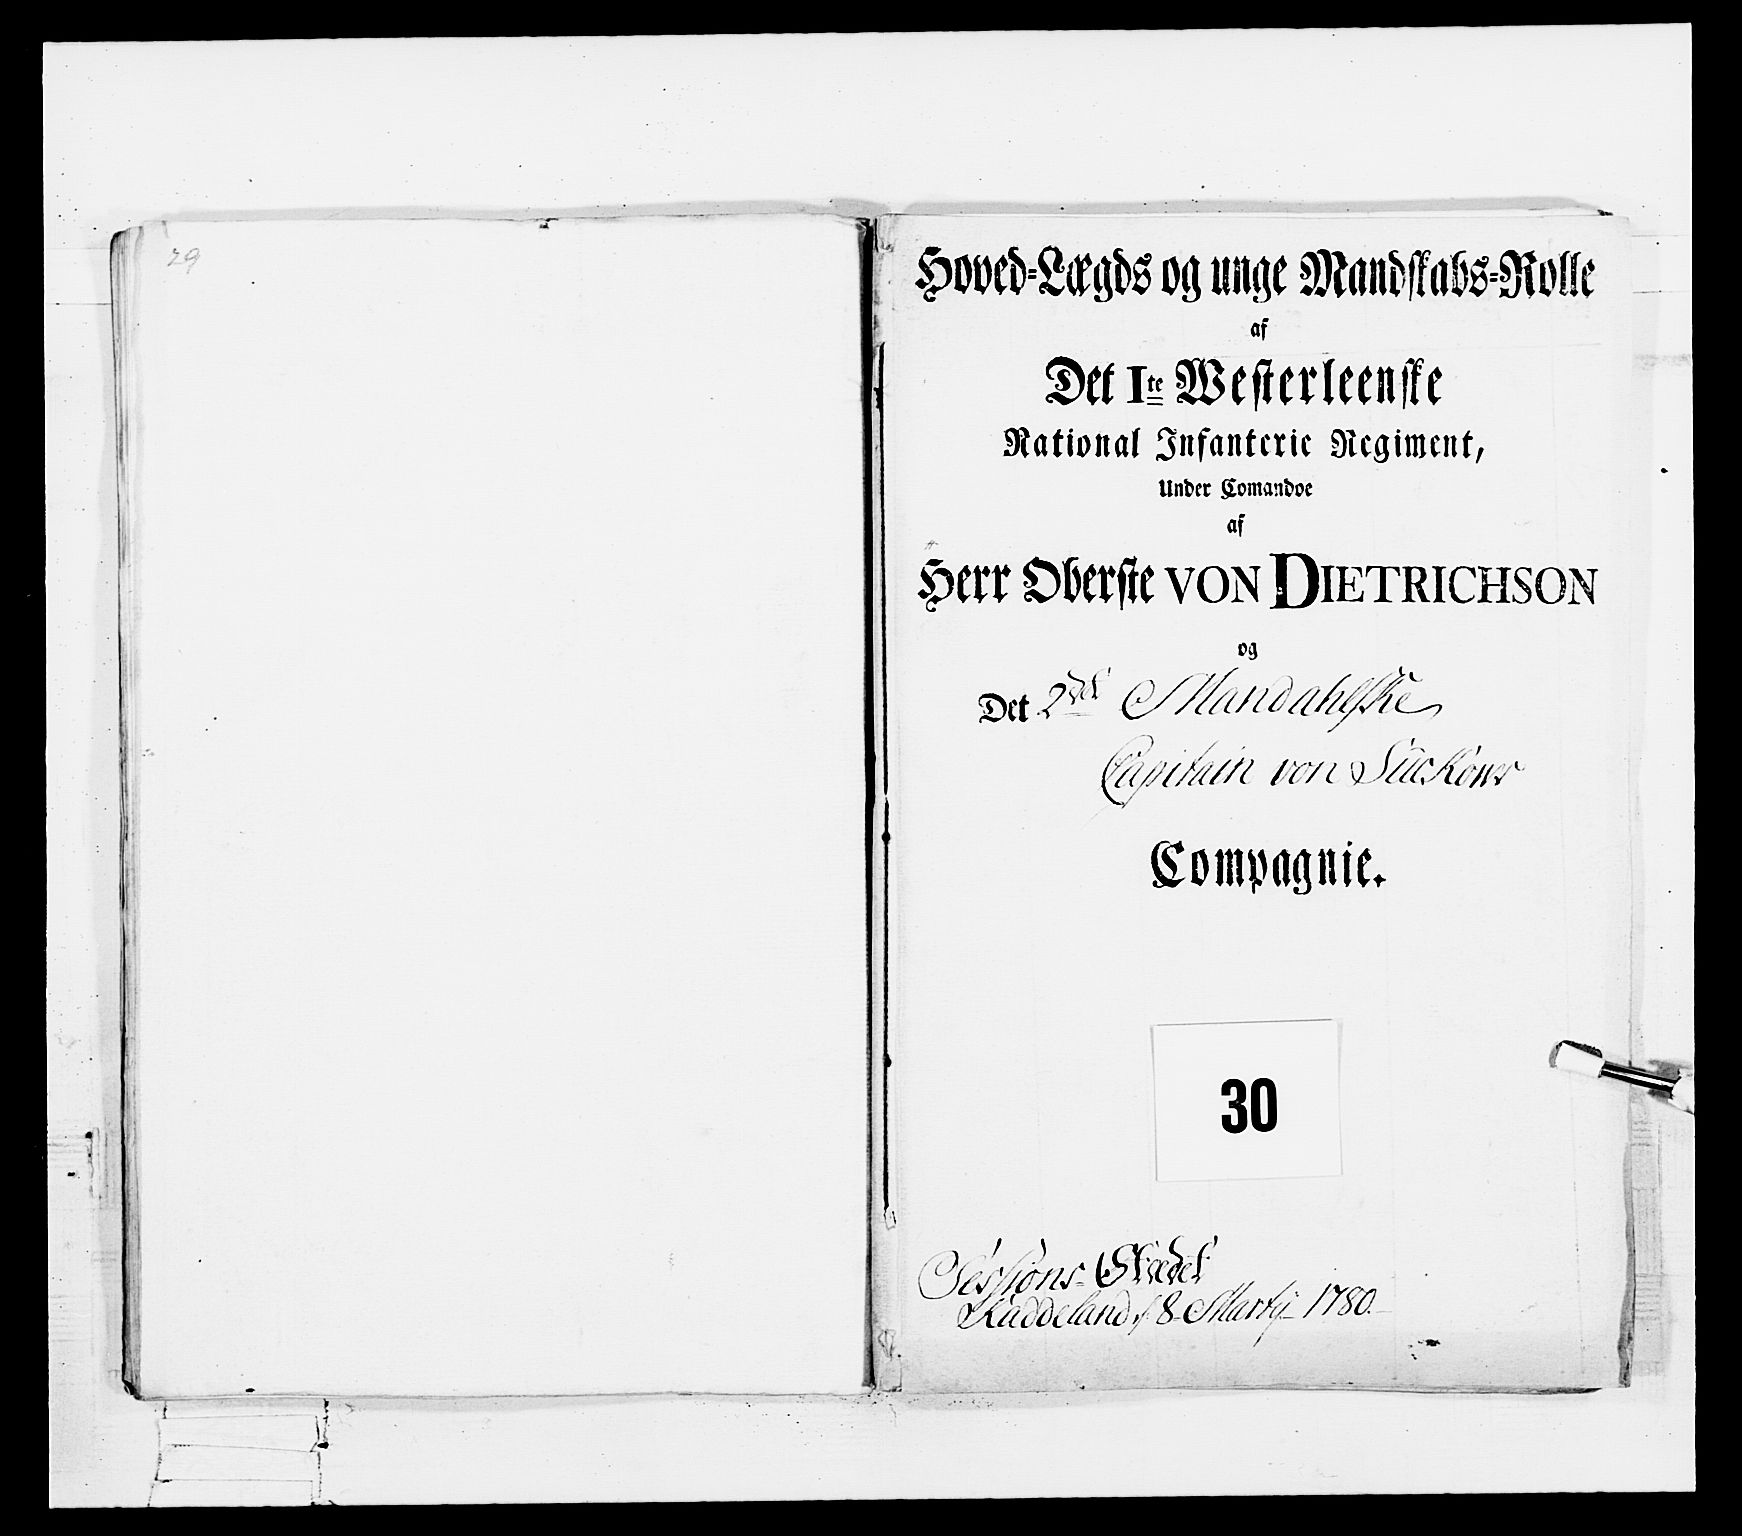 29
Hoved-Lægds og unge Mandskabs-Rolle
af
Det 1te Westerleenske
National Infanterie Regiment,
Under Comandoe
af
Herr Oberste VON DIETRICHSON
og
Det 2det Mandahlske
Capitain von Sückows
Compagnie.
30
Sessions-Stædet
Kaddeland d 8 Marty 1780.